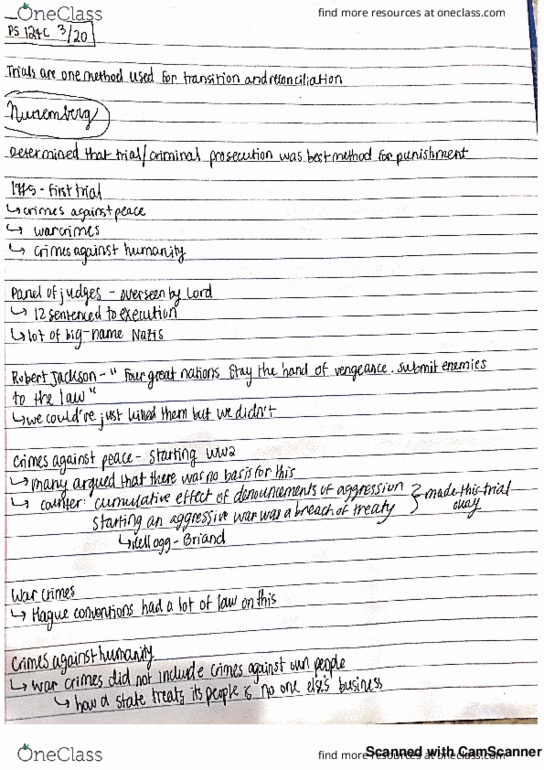 OneClass
find more resources at oneclass.com
PS 124C 3/20
Trials are one method used for transition and reconciliation
Nuremberg
Determined that trial/criminal prosecution was best method for punishment
- first trial
↳ crimes against peace
↳ war crimes
↳ crimes against humanity
Panel of judges - overseen by Lord
↳ 12 sentenced to execution
↳ lot of big-name Nazis
Robert Jackson - " Four great nations stay the hand of vengeance. submit enemies
to the law"
↳ we could've just killed them but we didn't
Crimes against peace - starting WW2
↳ many argued that there was no basis for this
↳ counter: cumulative effect of denouncements of aggression } made this trial
starting an aggressive war was a breach of treaty okay
↳ Kellogg - Briand
War crimes
↳ Hague conventions had a lot of law on this
Crimes against humanity
↳ war crimes did not include crimes against own people
↳ how a state treats its people is no one else's business
OneClass
find more resources at oneclass.com
Scanned with CamScanner